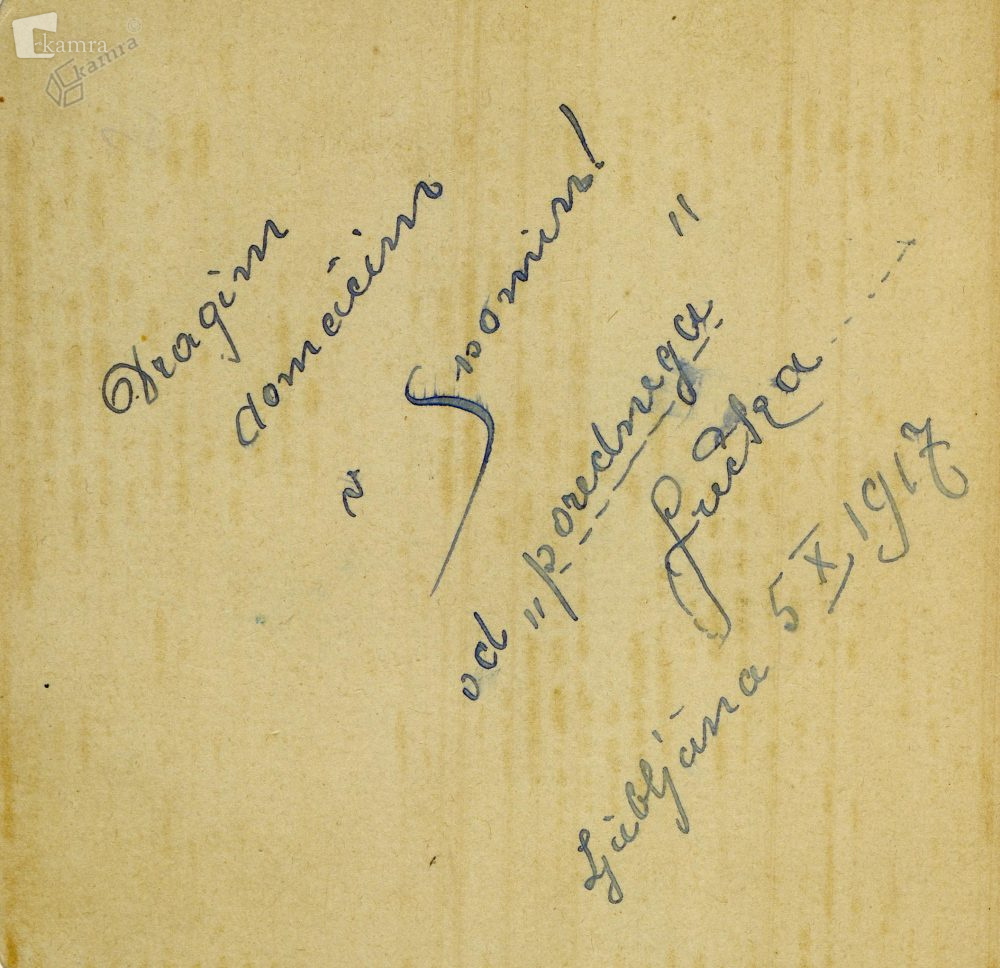 kamra
kamra
Dragim
domačim
v Spomin!
od "porednega"
Ljubljána 5 X. 1917